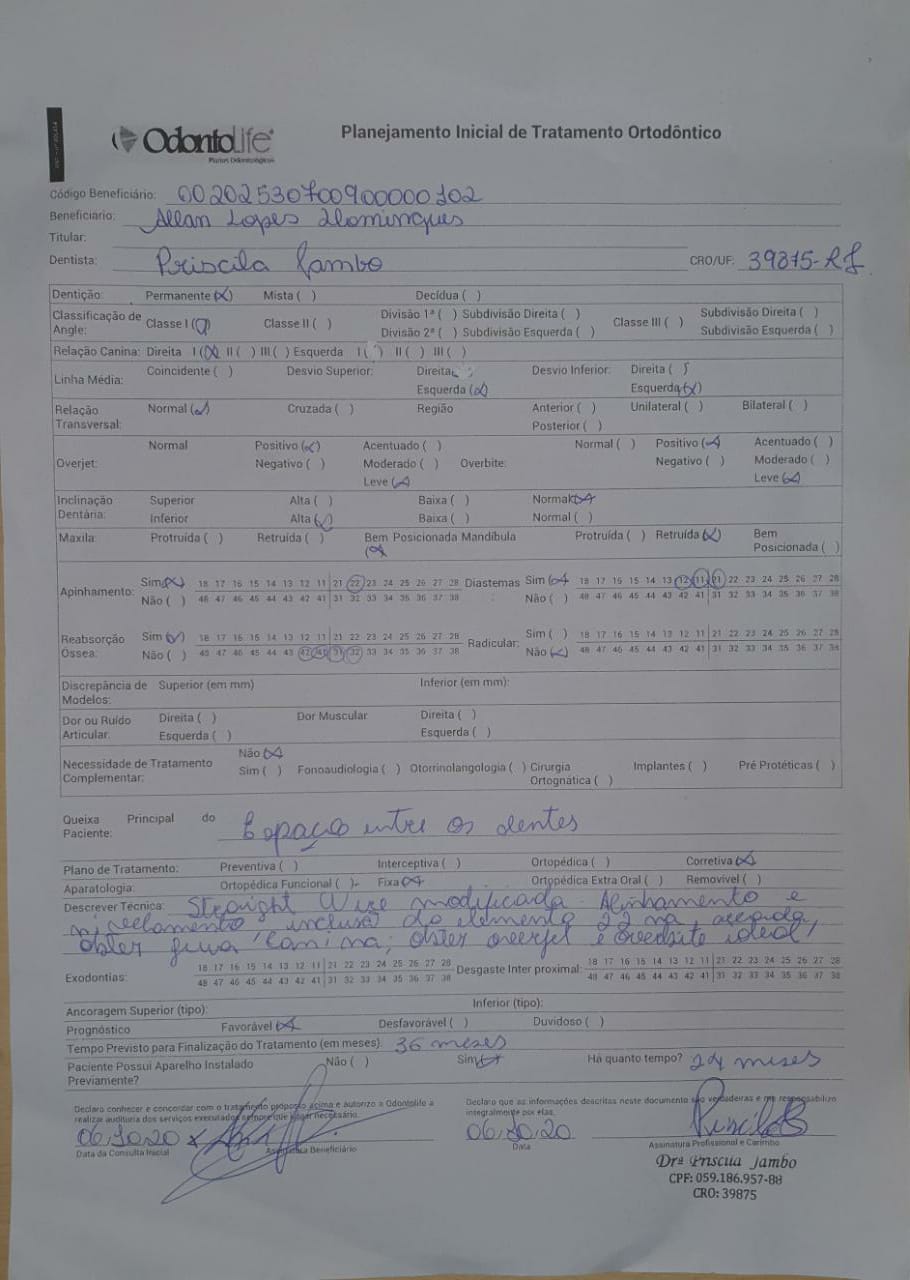 OdontoLife
Planos Odontológicos
Planejamento Inicial de Tratamento Ortodôntico
Código Beneficiário: 00202530700900000102
Beneficiário: Allan Lopes Domingues
Titular:
Dentista: Priscila Jambo CRO/UF: 39875-RJ
Dentição: Permanente (x) Mista ( ) Decídua ( )
Classificação de Angle: Classe I ( ) Classe II ( ) Divisão 1ª ( ) Subdivisão Direita ( ) Classe III ( ) Subdivisão Direita ( )
Divisão 2ª ( ) Subdivisão Esquerda ( ) Subdivisão Esquerda ( )
Relação Canina: Direita I (x) II ( ) III ( ) Esquerda I ( ) II ( ) III ( )
Linha Média: Coincidente ( ) Desvio Superior: Direita Desvio Inferior: Direita ( )
Esquerda (x) Esquerda (x)
Relação Transversal: Normal (x) Cruzada ( ) Região Anterior ( ) Unilateral ( ) Bilateral ( )
Posterior ( )
Overjet: Normal Positivo (x) Acentuado ( ) Normal ( ) Positivo (x) Acentuado ( )
Negativo ( ) Moderado ( ) Overbite: Negativo ( ) Moderado ( )
Leve (x) Leve (x)
Inclinação Dentária: Superior Alta ( ) Baixa ( ) Normal (x)
Inferior Alta (x) Baixa ( ) Normal ( )
Maxila: Protruída ( ) Retruída ( ) Bem Posicionada (x) Mandíbula Protruída ( ) Retruída (x) Bem Posicionada ( )
Apinhamento: Sim (x) 18 17 16 15 14 13 12 11 21 22 23 24 25 26 27 28 Diastemas Sim (x) 18 17 16 15 14 13 12 11 21 22 23 24 25 26 27 28
Não ( ) 48 47 46 45 44 43 42 41 31 32 33 34 35 36 37 38 Não ( ) 48 47 46 45 44 43 42 41 31 32 33 34 35 36 37 38
Reabsorção Óssea: Sim (x) 18 17 16 15 14 13 12 11 21 22 23 24 25 26 27 28 Radicular: Sim ( ) 18 17 16 15 14 13 12 11 21 22 23 24 25 26 27 28
Não ( ) 48 47 46 45 44 43 42 41 31 32 33 34 35 36 37 38 Não (x) 48 47 46 45 44 43 42 41 31 32 33 34 35 36 37 38
Discrepância de Modelos: Superior (em mm) Inferior (em mm):
Dor ou Ruído Articular: Direita ( ) Dor Muscular Direita ( )
Esquerda ( ) Esquerda ( )
Necessidade de Tratamento Complementar: Não (x)
Sim ( ) Fonoaudiologia ( ) Otorrinolangologia ( ) Cirurgia Ortognática ( ) Implantes ( ) Pré Protéticas ( )
Queixa Principal do Paciente: Espaço entre os dentes
Plano de Tratamento: Preventiva ( ) Interceptiva ( ) Ortopédica ( ) Corretiva (x)
Aparatologia: Ortopédica Funcional ( ) Fixa (x) Ortopédica Extra Oral ( ) Removível ( )
Descrever Técnica: Straight Wire modificada. Alinhamento e
nivelamento inclusão do elemento 22 na arcada,
obter guia canina, obter overjet e overbite ideal!
Exodontias: 18 17 16 15 14 13 12 11 21 22 23 24 25 26 27 28 Desgaste Inter proximal: 18 17 16 15 14 13 12 11 21 22 23 24 25 26 27 28
48 47 46 45 44 43 42 41 31 32 33 34 35 36 37 38 48 47 46 45 44 43 42 41 31 32 33 34 35 36 37 38
Ancoragem Superior (tipo): Inferior (tipo):
Prognóstico Favorável (x) Desfavorável ( ) Duvidoso ( )
Tempo Previsto para Finalização do Tratamento (em meses): 36 meses
Paciente Possui Aparelho Instalado Previamente? Não ( ) Sim (x) Há quanto tempo? 24 meses
Declaro conhecer e concordar com o tratamento proposto acima e autorizo a Odontolife a
realizar auditoria dos serviços executados sempre que julgar necessário.
Declaro que as informações descritas neste documento são verdadeiras e me responsabilizo
integralmente por elas.
06,10,20 x
Data da Consulta Inicial Assinatura Beneficiário
06,10,20 Priscila
Data Assinatura Profissional e Carimbo
Drª Priscila Jambo
CPF: 059.186.957-88
CRO: 39875